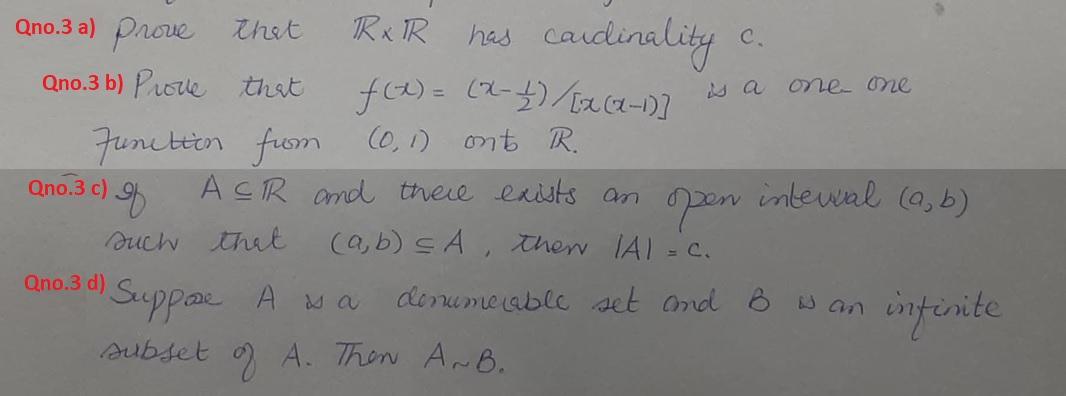 Qno.3 a) Prove that ℝ×ℝ has cardinality c.
Qno.3 b) Prove that f(x) = (x-1/2)/[x(x-1)] is a one one
Function from (0,1) onto ℝ.
Qno.3 c) If A ⊆ ℝ and there exists an open interval (a,b)
such that (a,b) ⊆ A, then |A| = c.
Qno.3 d) Suppose A is a denumerable set and B is an infinite
subset of A. Then A~B.